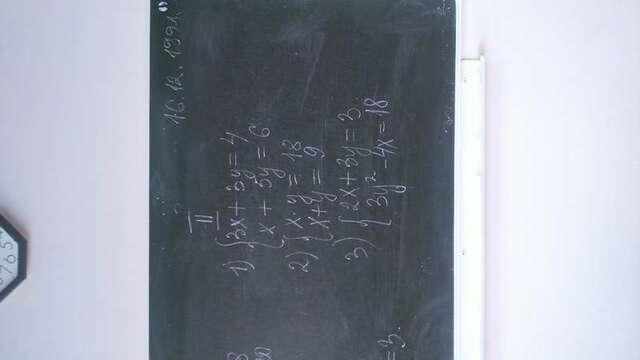 16.12.1991.
II
1) { 3x + 3y = 4
x + 5y = 6
2) { x · y = 18
x + y = 9
3) { 2x + 3y = 3
3y² - 4x = 18
= 3.